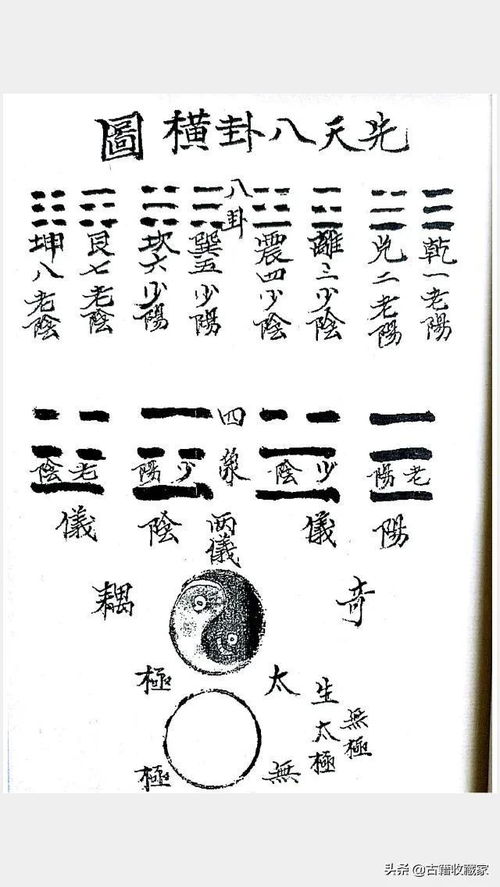 先天八卦橫圖
八卦
乾一老陽
兌二老陽
離三少陰
震四少陰
巽五少陽
坎六少陽
艮七老陰
坤八老陰
四象
老陽
少陰
少陽
老陰
陽儀
兩儀
陰儀
奇
耦
太極
無極生太極
無極
头条 @古籍收藏家